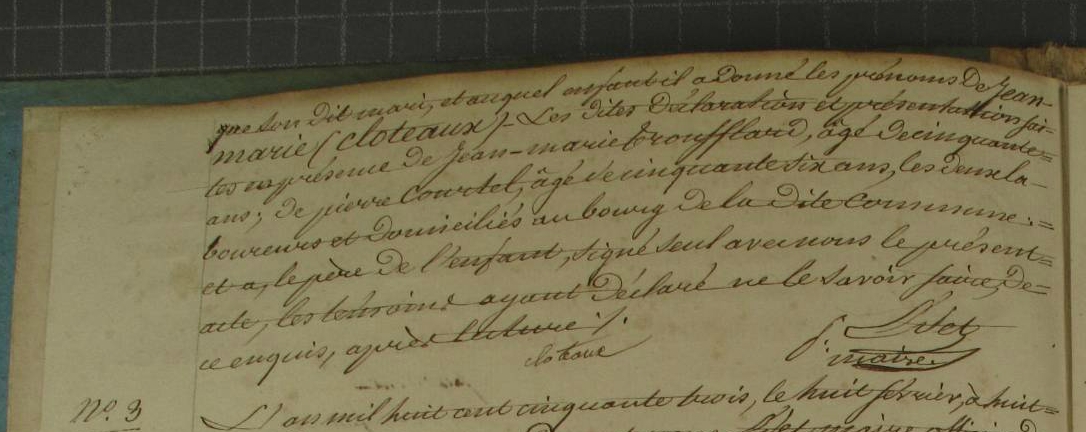 que son dit mari, et auquel enfant il a donné les prénoms de Jean-
marie (cloteaux). Les dites déclaration et présentation fai-
tes en présence de Jean-marie trouffflard, âgé de cinquante=
ans; de pierre Courtel, âgé de cinquante six ans, les deux la-
boureurs et domiciliés au bourg de la dite Commune:=
et a, le père de l'enfant, signé seul avec nous le présent=
acte, les témoins ayant déclaré ne le savoir faire, de=
ce enquis, après lecture ./.
clotaux
maire
N.° 3
L'an mil huit cent cinquante trois, le huit février, à huit=
maire